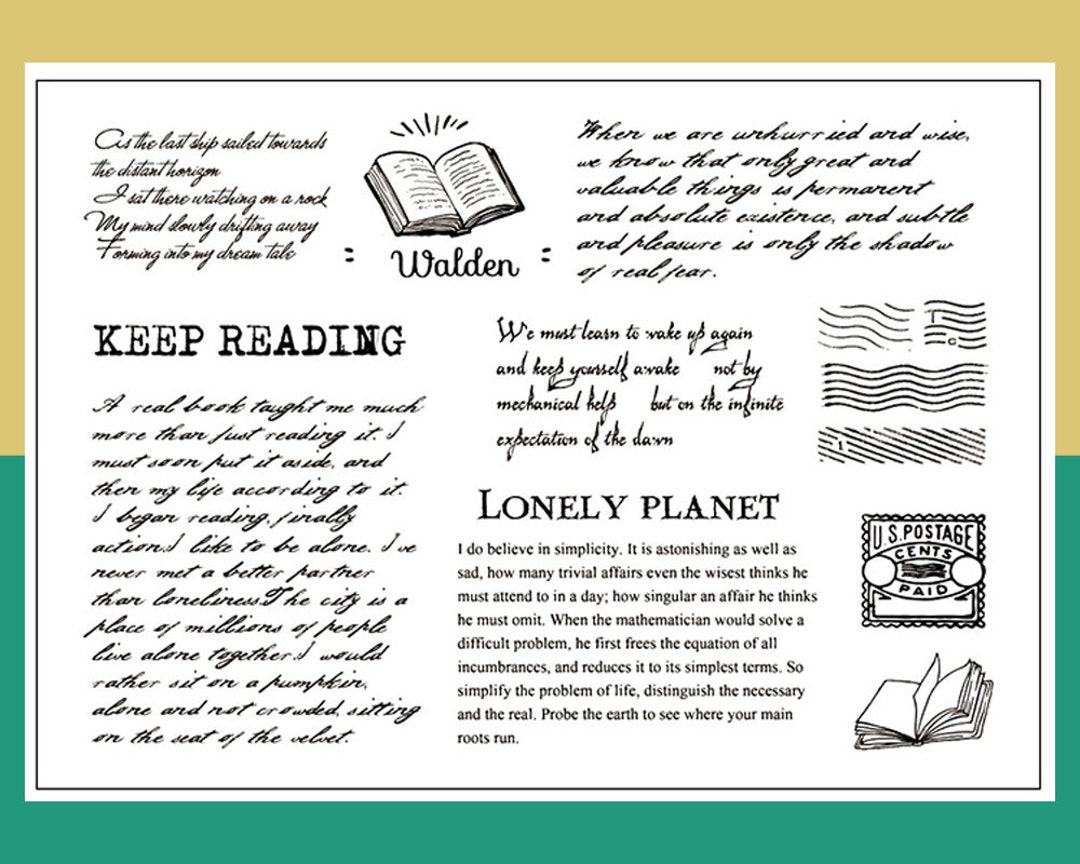 As the last ship sailed towards
the distant horizon
I sat there watching on a rock
My mind slowly drifting away
Forming into my dream tale
Walden
When we are unhurried and wise,
we know that only great and
valuable things is permanent
and absolute existence, and subtle
and pleasure is only the shadow
of real fear.
KEEP READING
A real book taught me much
more than just reading it. I
must soon put it aside, and
then my life according to it.
I began reading, finally
action.I like to be alone. I've
never met a better partner
than loneliness.The city is a
place of millions of people
live alone together.I would
rather sit on a pumpkin,
alone and not crowded, sitting
on the seat of the velvet.
We must learn to wake up again
and keep yourself awake not by
mechanical help but on the infinite
expectation of the dawn
LONELY PLANET
I do believe in simplicity. It is astonishing as well as
sad, how many trivial affairs even the wisest thinks he
must attend to in a day; how singular an affair he thinks
he must omit. When the mathematician would solve a
difficult problem, he first frees the equation of all
incumbrances, and reduces it to its simplest terms. So
simplify the problem of life, distinguish the necessary
and the real. Probe the earth to see where your main
roots run.
1
U.S.POSTAGE
CENTS
PAID